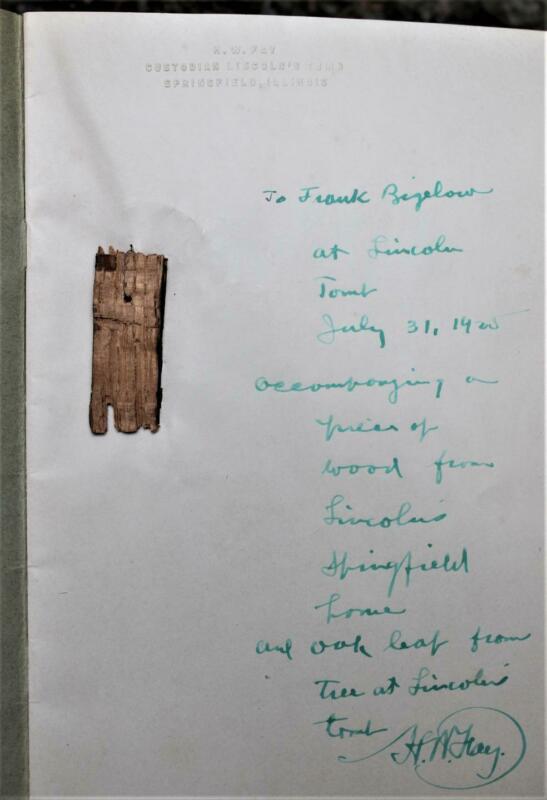 H. W. FAY
CUSTODIAN LINCOLN'S TOMB
SPRINGFIELD, ILLINOIS
To Frank Bigelow
at Lincoln
Tomb
July 31, 1925
accompanying a
piece of
wood from
Lincoln's
Springfield
home
and oak leaf from
tree at Lincoln's
tomb
H. W. Fay.